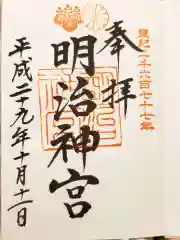 皇紀二千六百七十七年
奉拝
明治神宮
平成二十九年十月十二日